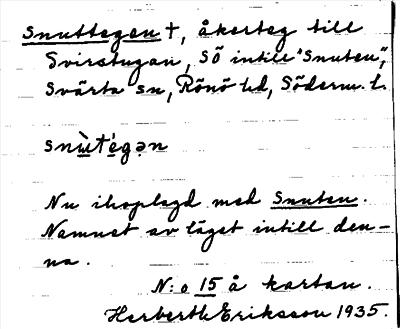 Snuttegen †, åkerteg till
Svirstugan, SÖ intill "Snuten",
Svärta sn, Rönö hd, Söderm. l.
snu̖t'egǝn
Nu ihoplagd med Snuten.
Namnet av läget intill den-
na.
N:o 15 å kartan.
Herberth Eriksson 1935.